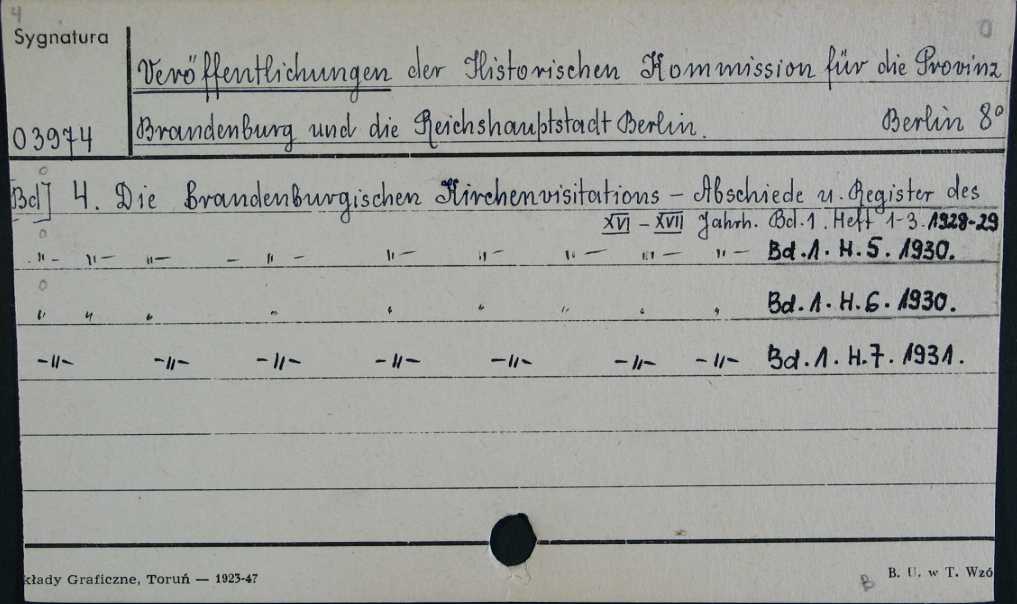 4
Sygnatura
Veröffentlichungen der Historischen Kommission für die Provinz
03974 Brandenburg und die Reichshauptstadt Berlin. Berlin 8°
Bd] 4. Die Brandenburgischen Kirchenvisitations – Abschiede u. Register des
XVI – XVII Jahrh. Bd. 1. Heft 1-3. 1928-29
-"- -"- -"- -"- -"- -"- -"- -"- -"- Bd. 1. H. 5. 1930.
" " " " " " " " " Bd. 1. H. 6. 1930.
-"- -"- -"- -"- -"- -"- -"- Bd. 1. H. 7. 1931.
kłady Graficzne, Toruń — 1923-47
B. U. w T. Wzó
B